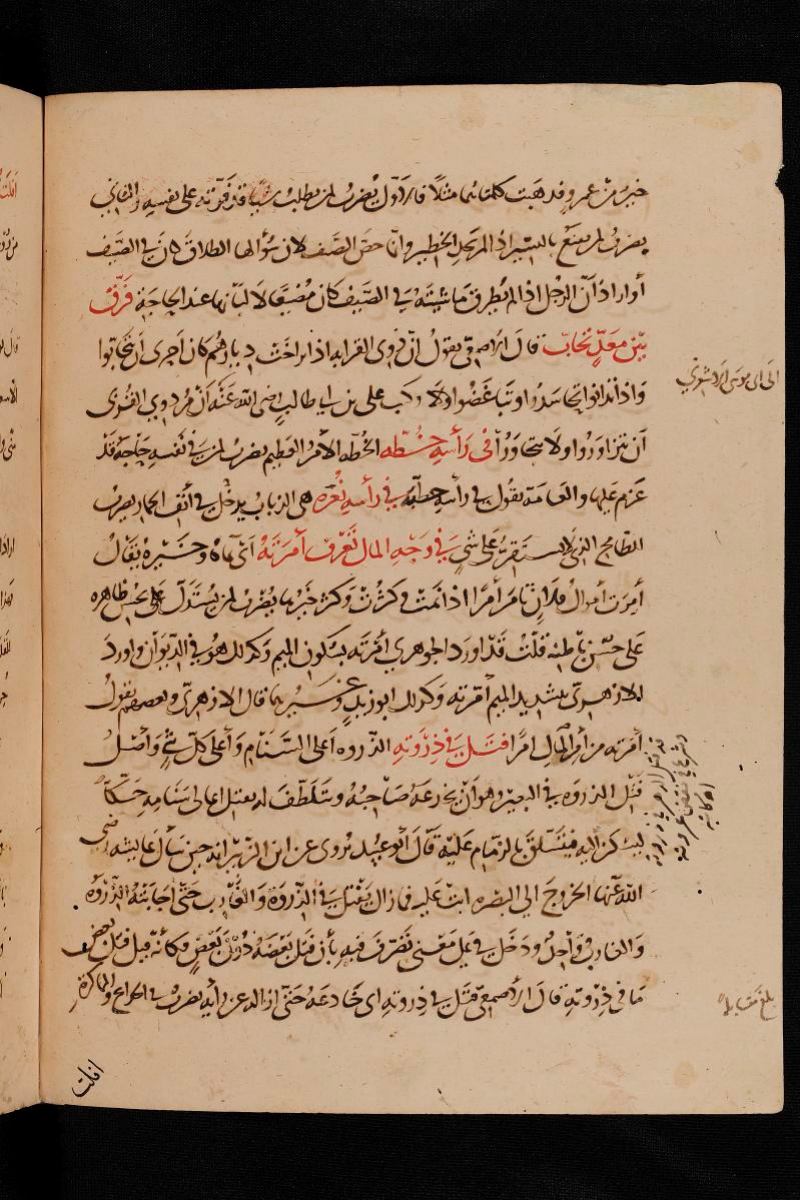 خير من عمرو فذهبت كلمتاهما مثلا فالاول يضرب لمن يطلب شيا قد فوته على نفسه والثاني
يضرب لمن يقنع باليسير اذا لم يجد الخطير وانما خص الصيف لان سؤالها الطلاق كان في الصيف
أو اراد أنّ الرجل اذا لم يطرق ماشيته في الصيف كان مضيعا لالبانها عند الحاجة فَرِّق
بين مَعَدٍّ تحابّ قال الاصمعي يقول انّ ذوي القرابة اذا تراخت ديارهم كان أحرى أن يتحابوا
وَاذا تدانوا تحاسدوا وتباغضوا ولا كتب علي بن ابي طالب رضي الله عنه أن مُر ذوي القربى
الى ابي موسى الاشعري
أن يتزاوروا ولا يتجاوروا في رأسه خُطّه الخطه الأمر العظيم يضرب لمن في نفسه حاجة قد
عزم عليها والعامة تقول في رأسه خطبه في رأسه نُعَرَه هي الذباب يدخل في أنف الحمار يضرب
للطامح الذي لا يستقر على شي في وجه المال تعرف أمَرَتَهُ أي نماه وخيره يقال
أمِرَت أموال فلان تأمر أمَرًا اذا نمت وكثرت وكثر خيرها يضرب لمن يستدل على بحسن ظاهره
على حسن باطنه قلت قد أورد الجوهري أمرته بسكون الميم وكذلك هو في الديوان وأورد
الازهري بتشديد الميم أمّرته وكذلك ابو زيد وغيرهما قال الازهري وبعضهم يقول
أمرته من أمر المال امرًا فتل في ذروته الذروه اعلى السنام وَأعلى كل شي وَأصل
فتل الذروه في البعير وهو أن يخدعه صاحبه ويتلطف له بفتل اعالى سنامه حكّا
ليسكن اليه فيتسلق بالزمام عليه قال أبو عبيد يروى عن ابن الزبير انه حين سأل عايشه رضي
الله عنها الخروج الي البصره ابت عليه فما زال يفتل في الذروة وَالغارب حتّى اجابته الذروه
وَالغارب واحد ودخل في على معنى تصرف فيه بأن فتل بعضه دون بَعض فكأنه قيل فتل بعض
مَا في ذروته قال الاصمعي فتل في ذروته اي خادعه حتى ازاله عن رأيه يضرب في الخداع والمماكرة
بلغ مقابلة
افلت